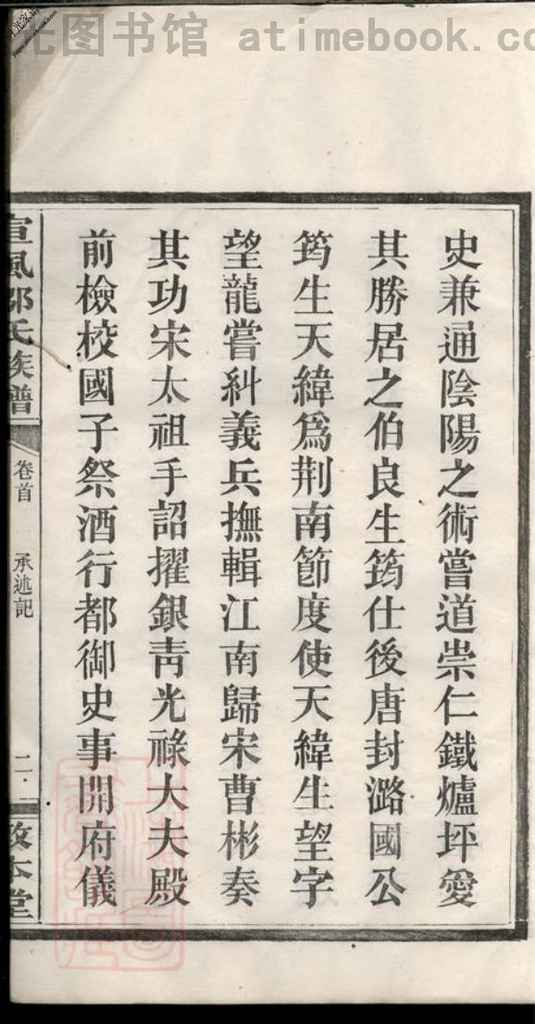 光图书馆 atimebook.co
史兼通陰陽之術嘗道崇仁鐵爐坪愛
其勝居之伯良生筠仕後唐封潞國公
筠生天緯爲荆南節度使天緯生望字
望龍嘗糾義兵撫輯江南歸宋曹彬奏
其功宋太祖手詔擢銀靑光祿大夫殿
前檢校國子祭酒行都御史事開府儀
宣風鄒氏族譜
卷首
承述記
二
敦本堂